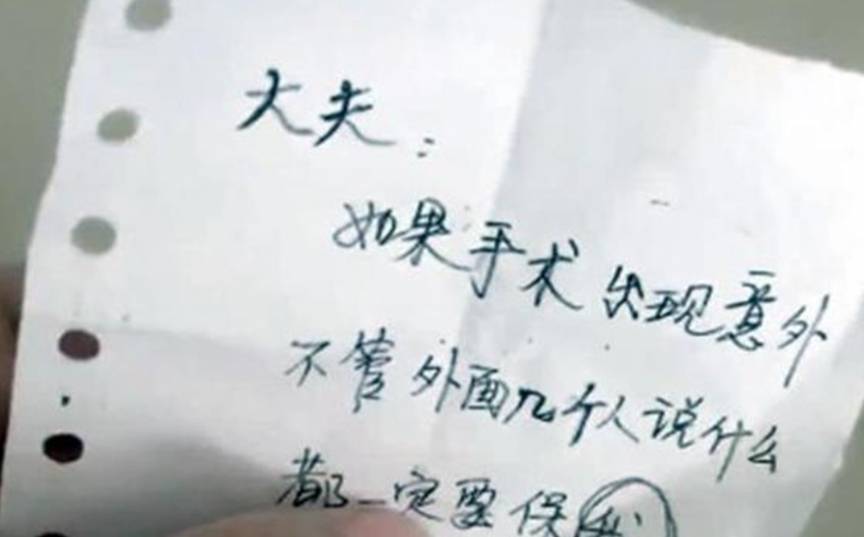 大夫:
如果手术出现意外
不管外面几个人说什么
都一定要保我